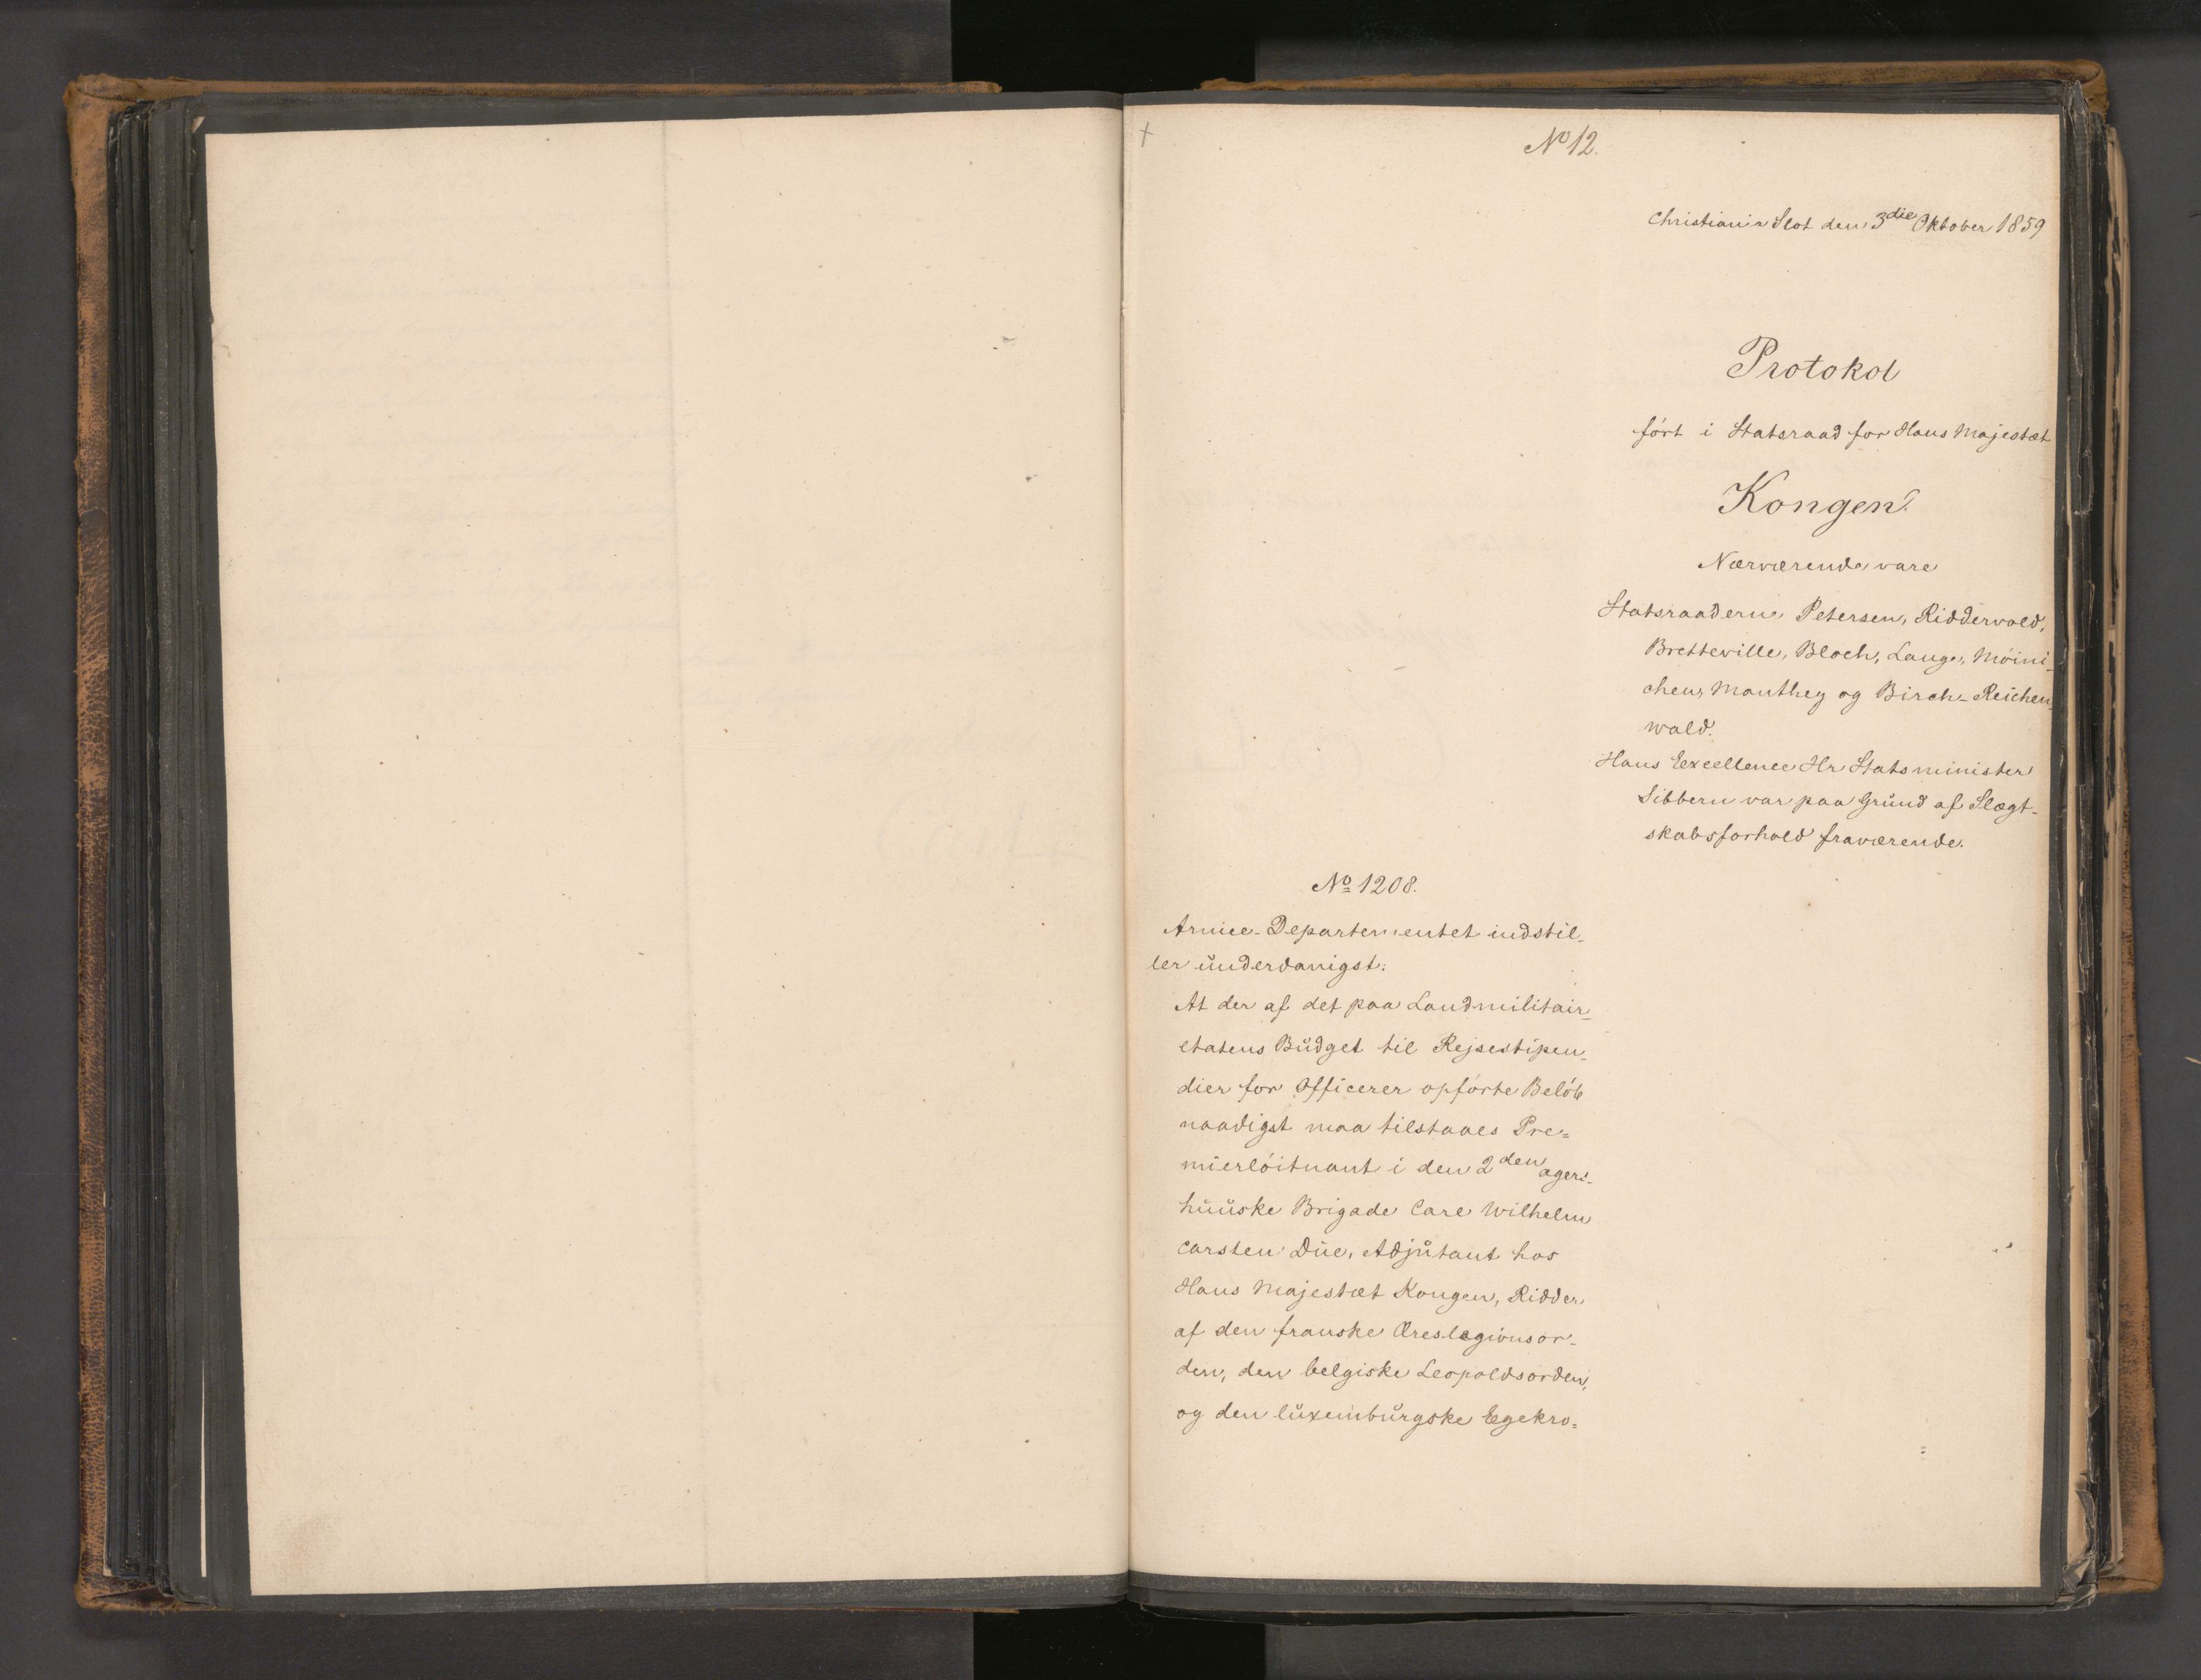 +
No 12.
Christiania Slot den 3die Oktober 1859
Protokol
ført i Statsraad for Hans Majestæt
Kongen.
Nærværende vare
Statsraaderne Petersen, Riddervold,
Bretteville, Bloch, Lange, Möini-
chen, Manthey og Birch-Reichen-
wald.
Hans Excellence Hr Statsminister
Sibbern var paa Grund af Slægt-
skabsforhold fraværende.
No 1208.
Armee-Departementet indstil-
ler underdanigst:
At der af det paa Landmilitair-
etatens Budget til Rejsestipen-
dier for Officerer opførte Beløb
naadigst maa tilstaaes Pre=
mierløitnant i den 2den agers-
huuske Brigade Carl Wilhelm
Carsten Due, Adjutant hos
Hans Majestæt Kongen, Ridder
af den franske Æreslegionsor-
den, den belgiske Leopoldsorden,
og den luxemburgske Egekro=